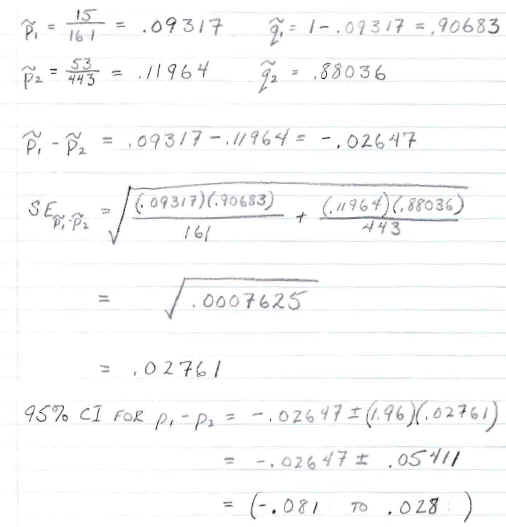 p̃₁ = 15/161 = .09317 q̃₁ = 1-.09317 = .90683
p̃₂ = 53/443 = .11964 q̃₂ = .88036
p̃₁ - p̃₂ = .09317-.11964 = -.02647
SE p̃₁-p̃₂ = √((.09317)(.90683)/161 + (.11964)(.88036)/443)
= √.0007625
= .02761
95% CI FOR p₁-p₂ = -.02647 ± (1.96)(.02761)
= -.02647 ± .05411
= (-.081 TO .028)